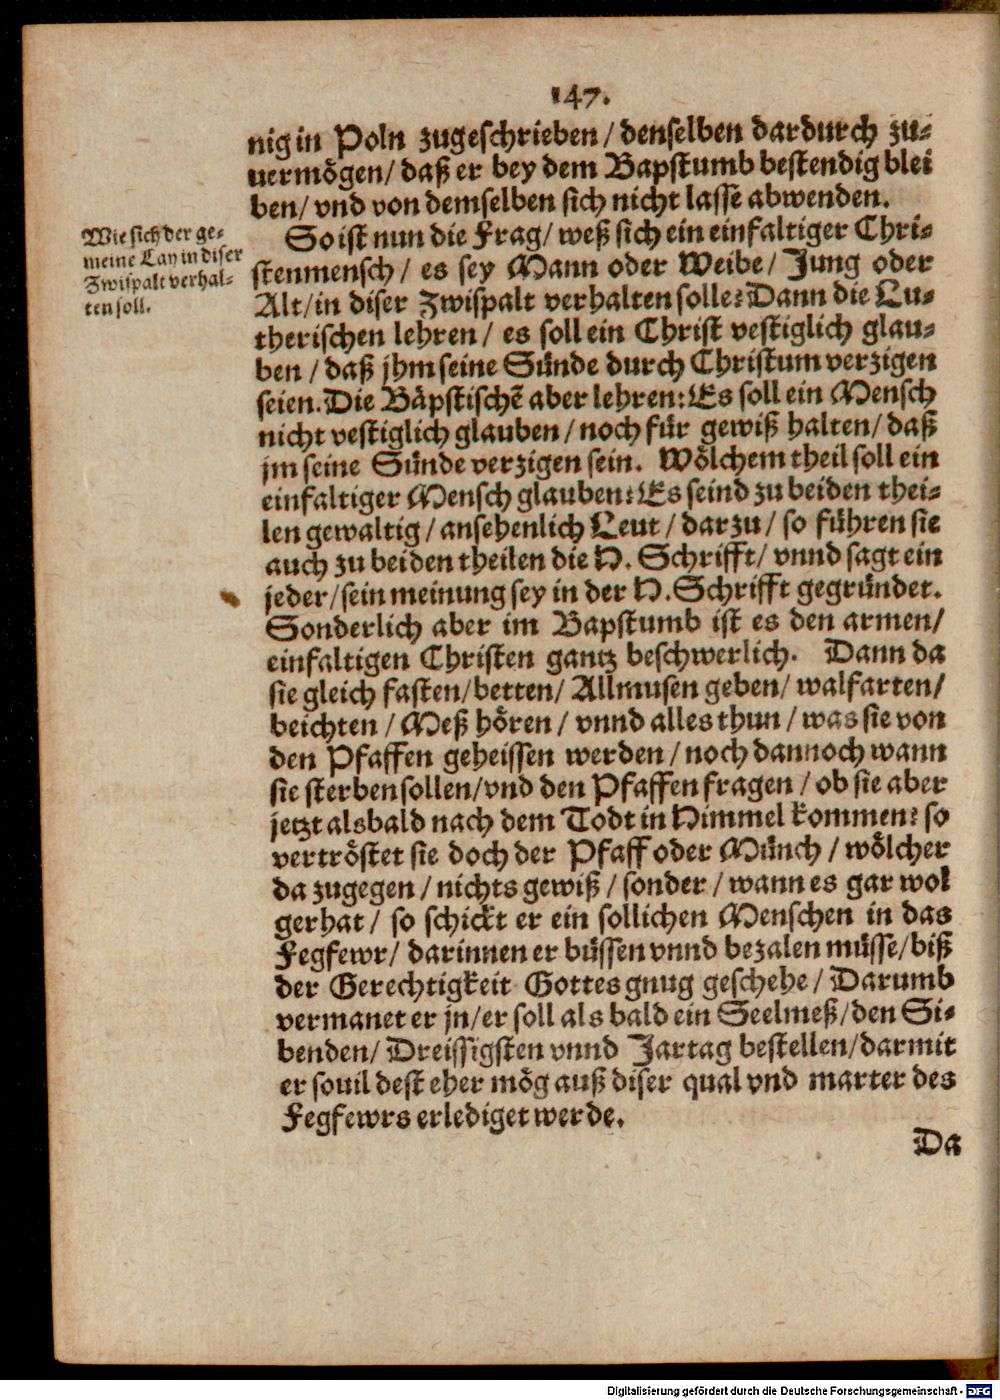 147.
nig in Poln zugeschrieben / denselben dardurch zu-
uermögen / daß er bey dem Bapstumb bestendig blei
ben / vnd von demselben sich nicht lasse abwenden.
Wie sich der ge-
meine Lay in diser
Zwispalt verhal-
ten soll.
So ist nun die Frag / weß sich ein einfaltiger Chri-
stenmensch / es sey Mann oder Weibe / Jung oder
Alt / in diser Zwispalt verhalten solle? Dann die Lu-
therischen lehren / es soll ein Christ vestiglich glau-
ben / daß jhm seine Sünde durch Christum verzigen
seien. Die Bäpstischẽ aber lehren: Es soll ein Mensch
nicht vestiglich glauben / noch für gewiß halten / daß
jm seine Sünde verzigen sein. Wölchem theil soll ein
einfaltiger Mensch glauben? Es seind zu beiden thei-
len gewaltig / ansehenlich Leut / darzu / so führen sie
auch zu beiden theilen die H. Schrifft / vnnd sagt ein
jeder / sein meinung sey in der H. Schrifft gegründet.
Sonderlich aber im Bapstumb ist es den armen /
einfaltigen Christen gantz beschwerlich. Dann da
sie gleich fasten / betten / Allmusen geben / walfarten /
beichten / Meß hören / vnnd alles thun / was sie von
den Pfaffen geheissen werden / noch dannoch wann
sie sterben sollen / vnd den Pfaffen fragen / ob sie aber
jetzt alsbald nach dem Todt in Himmel kommen? so
vertröstet sie doch der Pfaff oder Münch / wölcher
da zugegen / nichts gewiß / sonder / wann es gar wol
gerhat / so schickt er ein sollichen Menschen in das
Fegfewr / darinnen er büssen vnnd bezalen müsse / biß
der Gerechtigkeit Gottes gnug geschehe / Darumb
vermanet er jn / er soll als bald ein Seelmeß / den Si-
benden / Dreissigsten vnnd Jartag bestellen / darmit
er souil dest eher mög auß diser qual vnd marter des
Fegfewrs erlediget werde.
Da
Digitalisierung gefördert durch die Deutsche Forschungsgemeinschaft - DFG